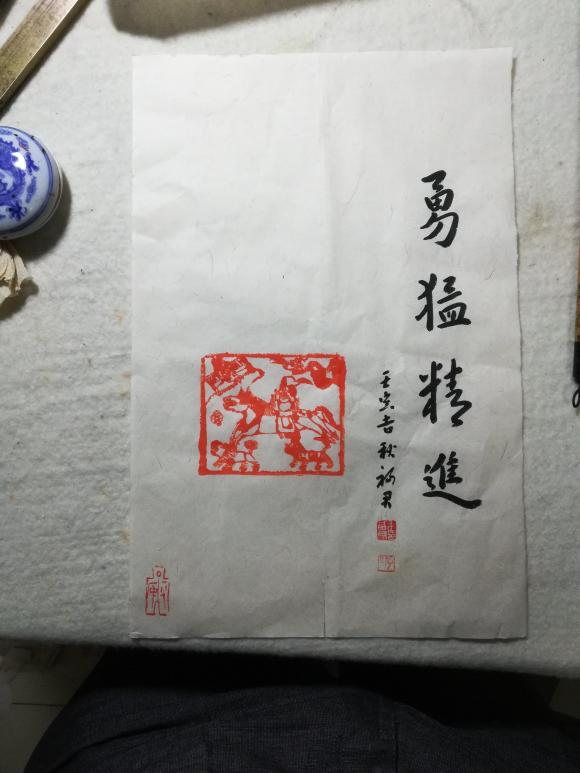 勇猛精進
壬寅吉秋